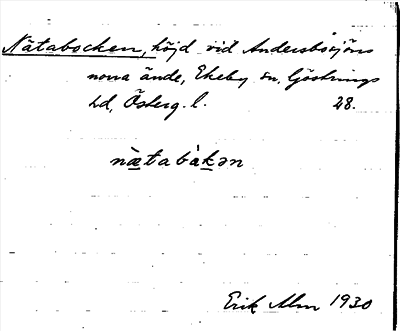 Nätabocken, höjd vid Andersbosjöns
norra ände, Ekeby sn, Göstrings
hd, Österg. l. 28.
nætabàkən
Erik Alm 1930